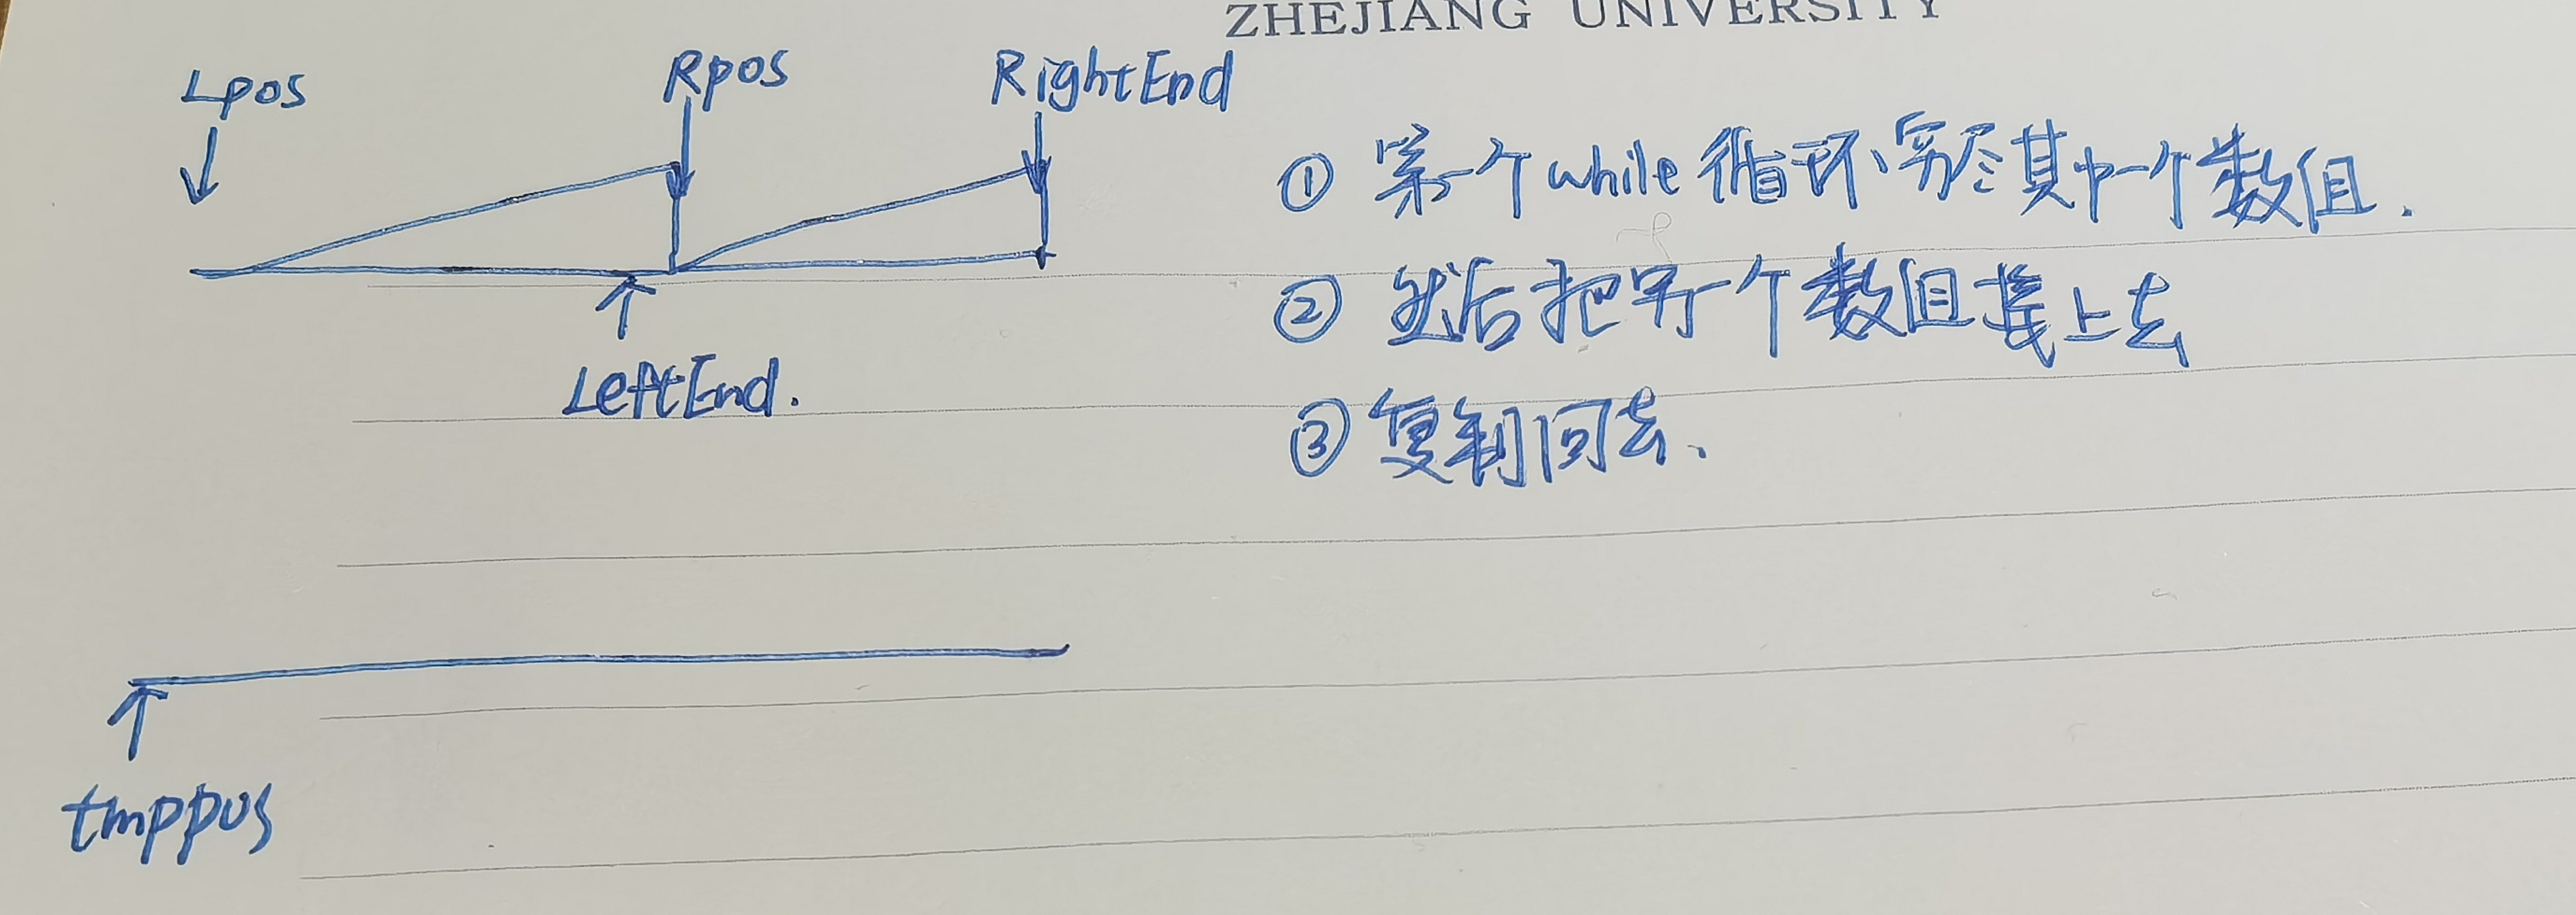 ZHEJIANG UNIVERSITY
Lpos
Rpos
RightEnd
LeftEnd.
tmppos
① 第一个while循环、穷尽其中一个数组.
② 然后把另一个数组接上去
③ 复制回去、